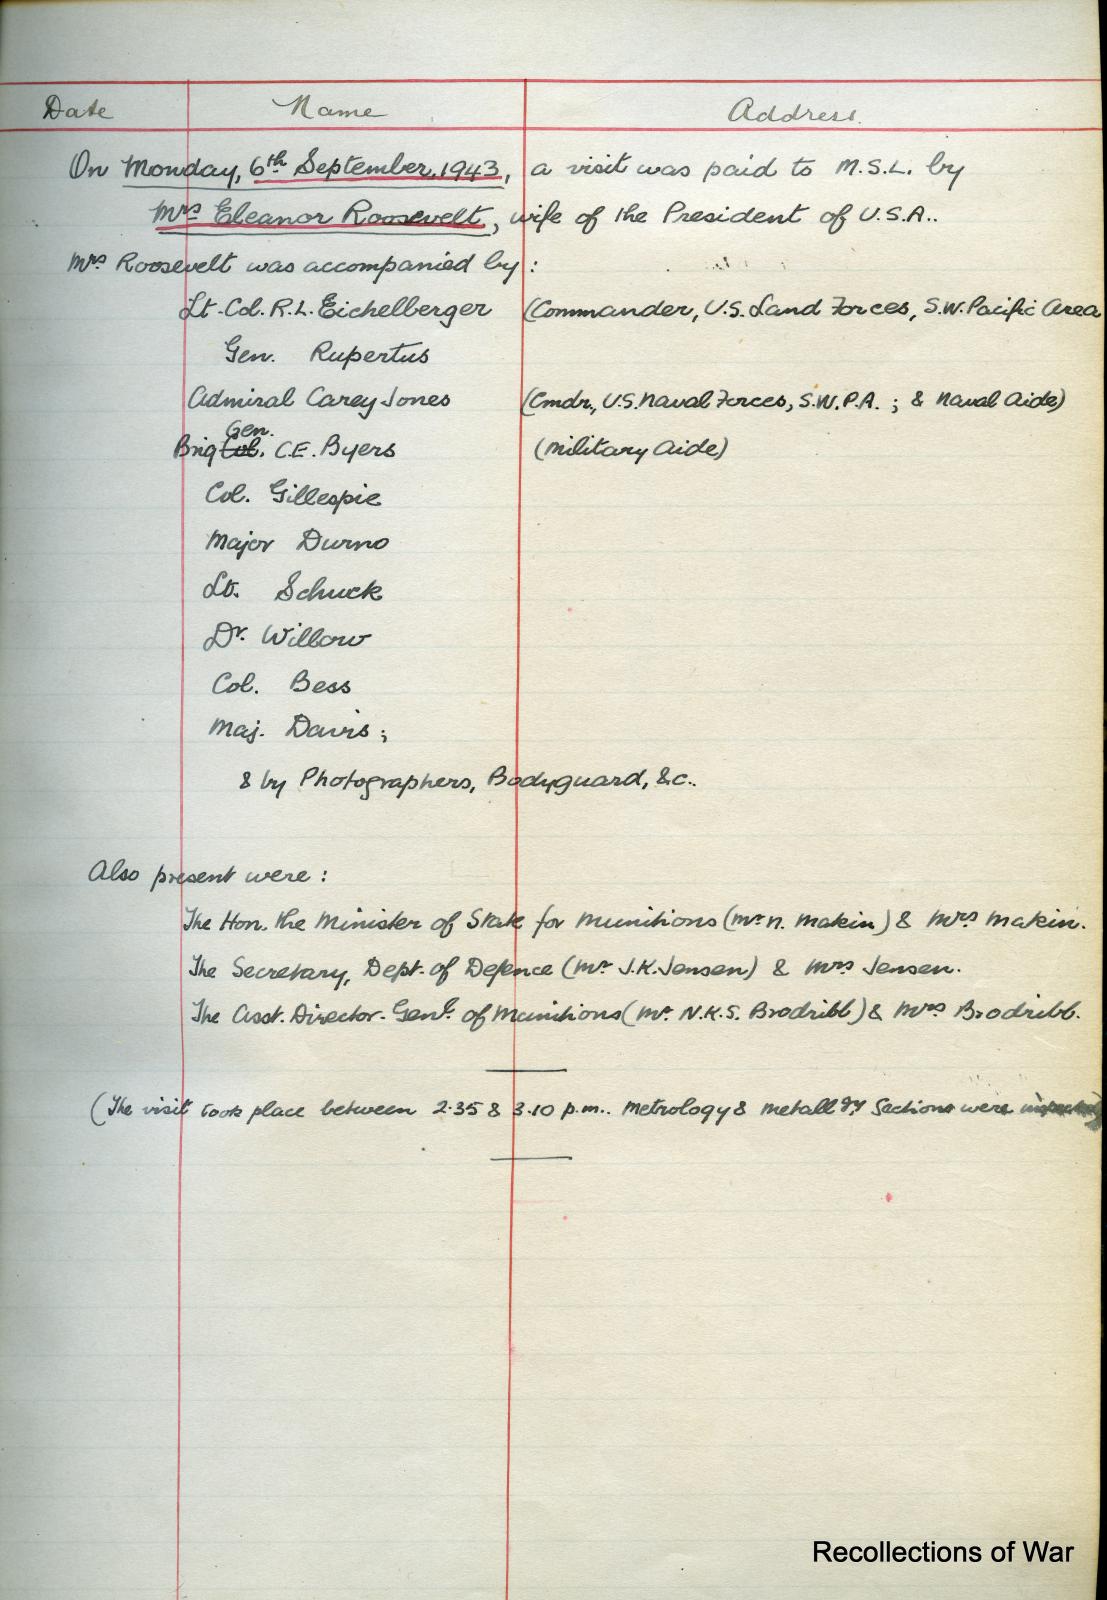 Date Name Address
On Monday, 6th September, 1943, a visit was paid to M.S.L. by
Mrs Eleanor Roosevelt, wife of the President of U.S.A..
Mrs Roosevelt was accompanied by:
Lt. Col. R.L. Eichelberger (Commander, U.S. Land Forces, S.W. Pacific Area
Gen. Rupertus
Admiral Carey Jones (Cmdr., U.S. Naval Forces, S.W.P.A. ; & Naval Aide)
Gen.
Brig Col. C.E. Byers (Military Aide)
Col. Gillespie
Major Durno
Lt. Schuck
Dr. Willow
Col. Bess
Maj. Davis ;
& by Photographers, Bodyguard, &c..
Also present were :
The Hon. the Minister of State for Munitions (Mr N. Makin) & Mrs Makin.
The Secretary, Dept. of Defence (Mr J.K. Jensen) & Mrs Jensen.
The Asst. Director-Genl. of Munitions (Mr N.K.S. Brodribb) & Mrs Brodribb.
(The visit took place between 2.35 & 3.10 p.m.. Metrology & Metallgy Sections were inspected)
Recollections of War